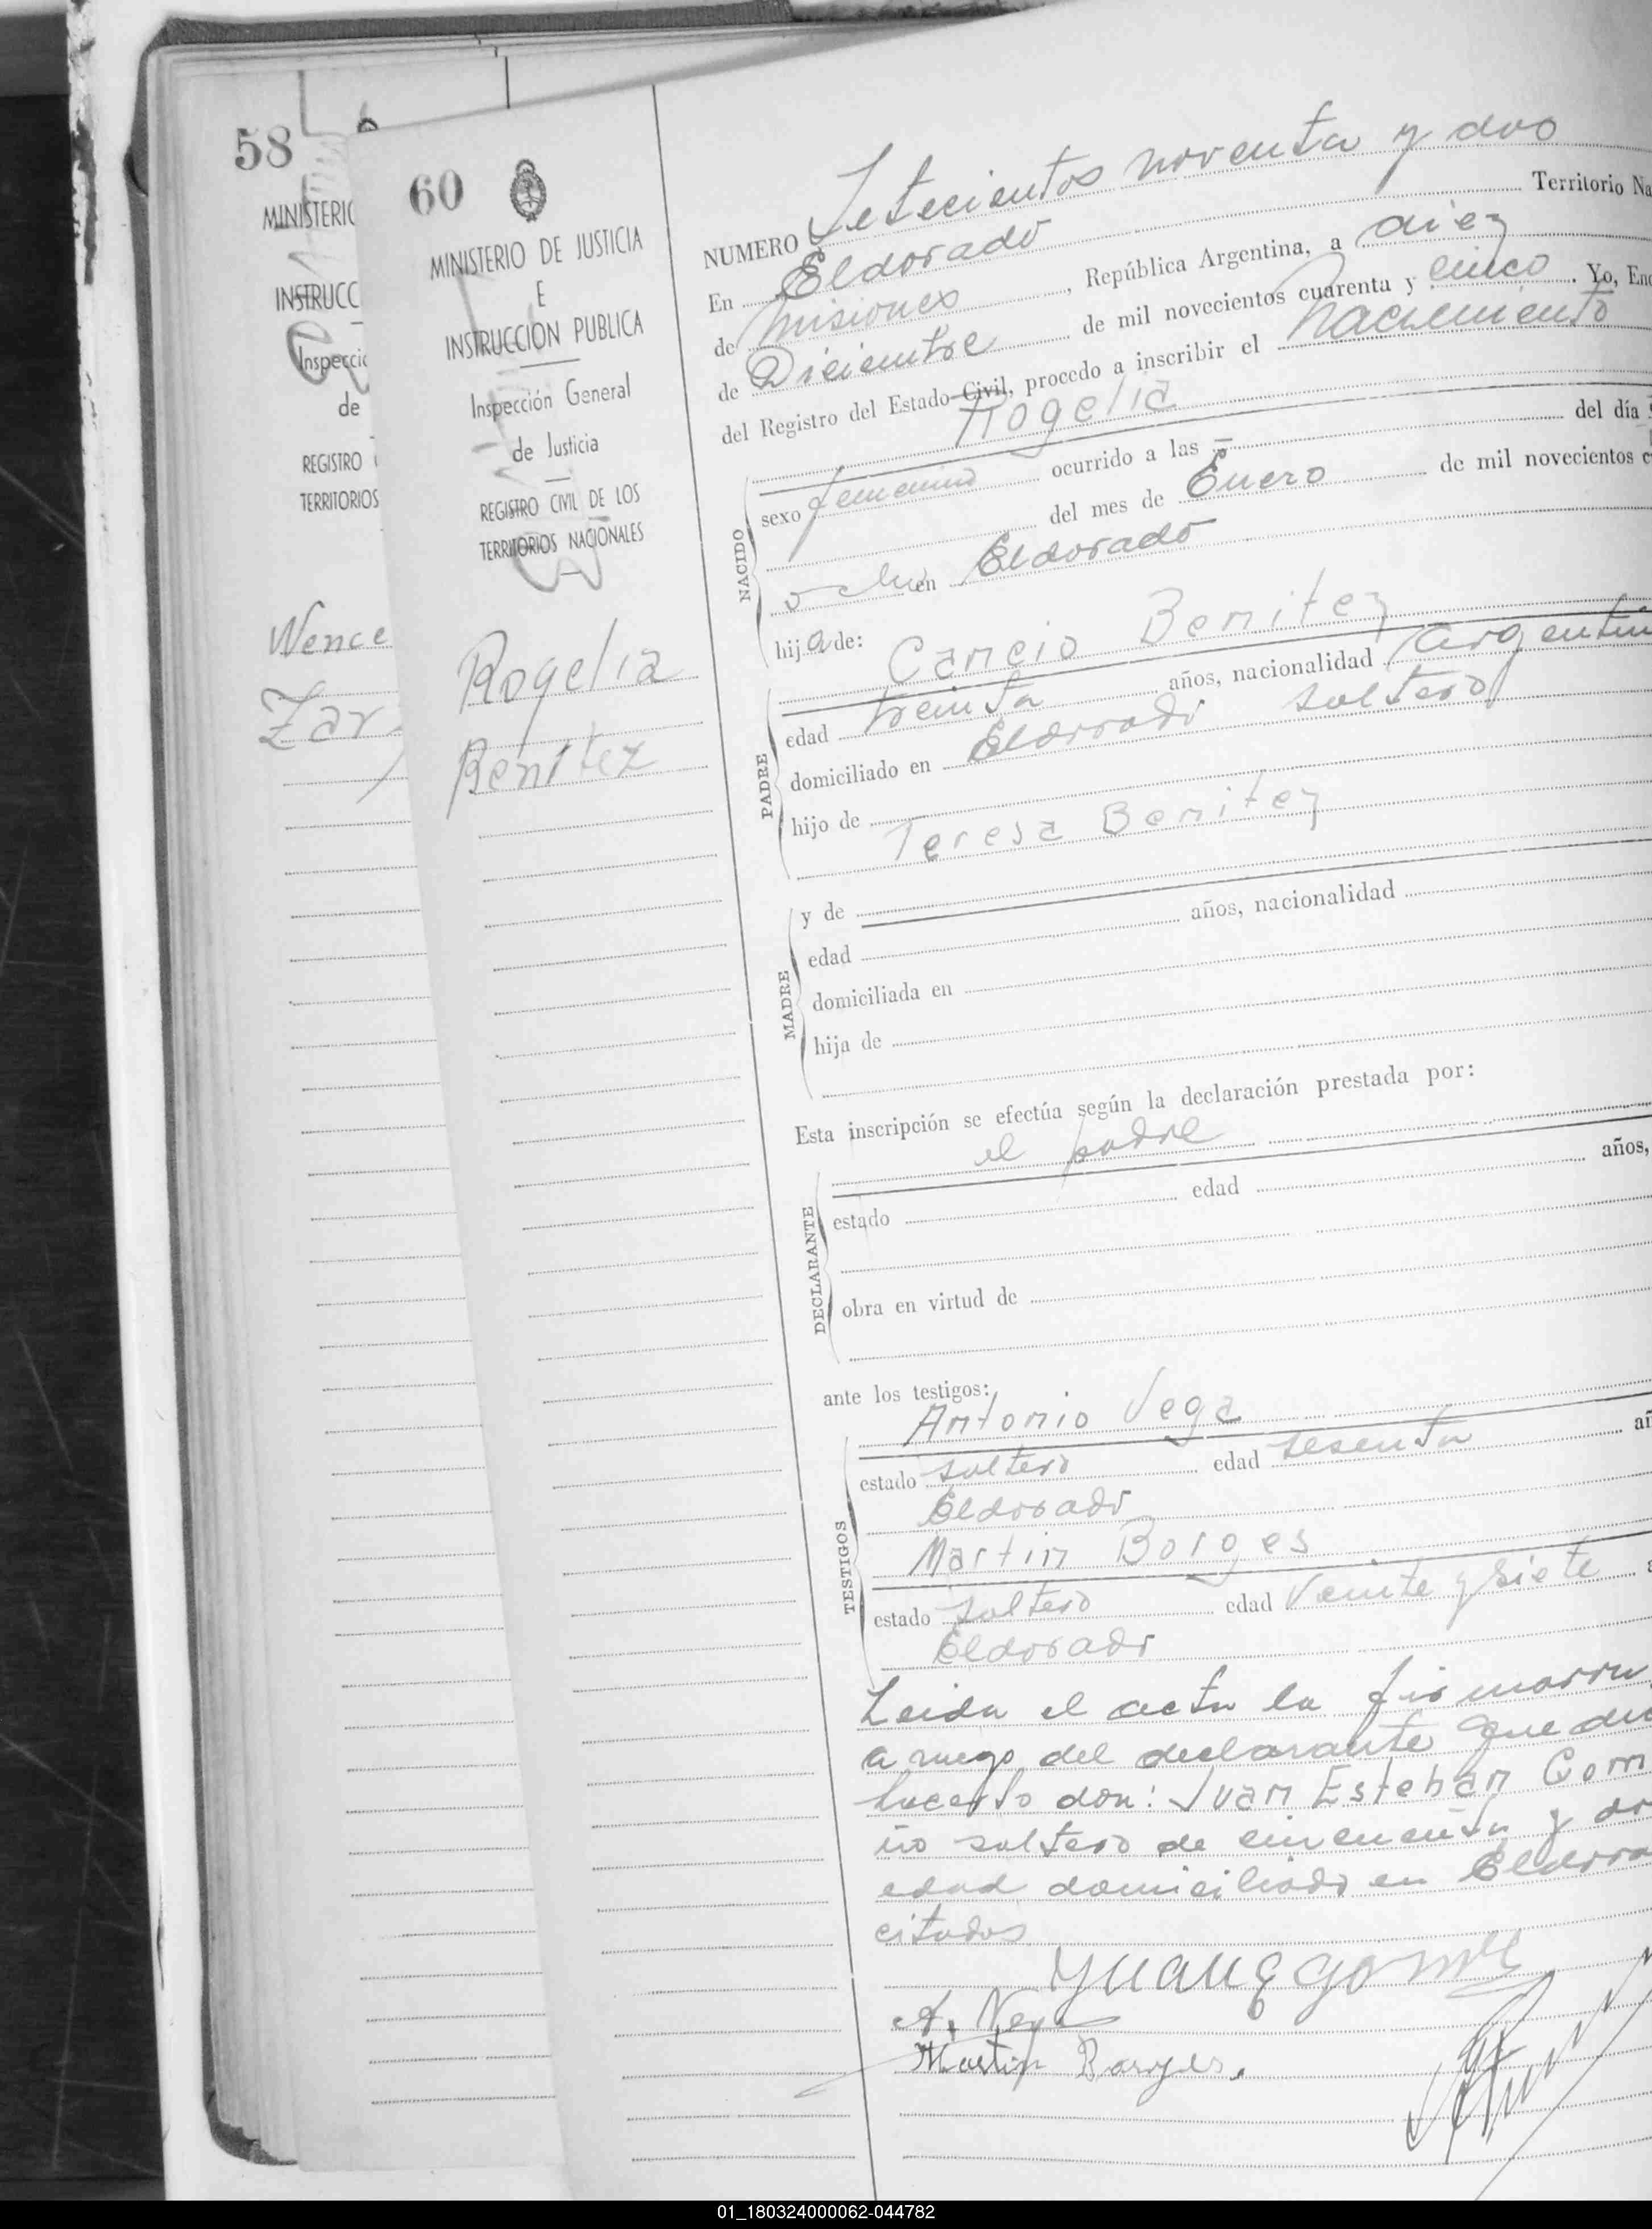 58
MINISTERIO
INSTRUCC
Inspecci
de
REGISTRO
TERRITORIOS
Wence
Zar
60
MINISTERIO DE JUSTICIA
E
INSTRUCCION PUBLICA
Inspección General
de Justicia
REGISTRO CIVIL DE LOS
TERRITORIOS NACIONALES
Rogelia
Benitez
NUMERO Setecientos noventa y dos
En Eldorado Territorio Na
de Misiones, República Argentina, a diez
de Diciembre de mil novecientos cuarenta y cinco. Yo, Enc
del Registro del Estado Civil, procedo a inscribir el nacimiento
Rogelia
NACIDO
sexo femenino ocurrido a las del día
del mes de Enero de mil novecientos c
ocho en Eldorado
hija de:
Cancio Benitez
PADRE
edad treinta años, nacionalidad argentin
domiciliado en Eldorado soltero
hijo de
Teresa Benitez
y de
MADRE
edad años, nacionalidad
domiciliada en
hija de
Esta inscripción se efectúa según la declaración prestada por:
el padre
DECLARANTE
estado edad años,
obra en virtud de
ante los testigos:
Antonio Vega
TESTIGOS
estado soltero edad sesenta añ
Eldorado
Martin Borges
estado soltero edad veinte y siete a
Eldorado
Leida el acta la firmaron
a ruego del declarante que dic
hacerlo don: Juan Esteban Gom
no soltero de cincuenta y do
edad domiciliado en Eldora
citados
A. Vega
Martin Borges.
01_180324000062-044782